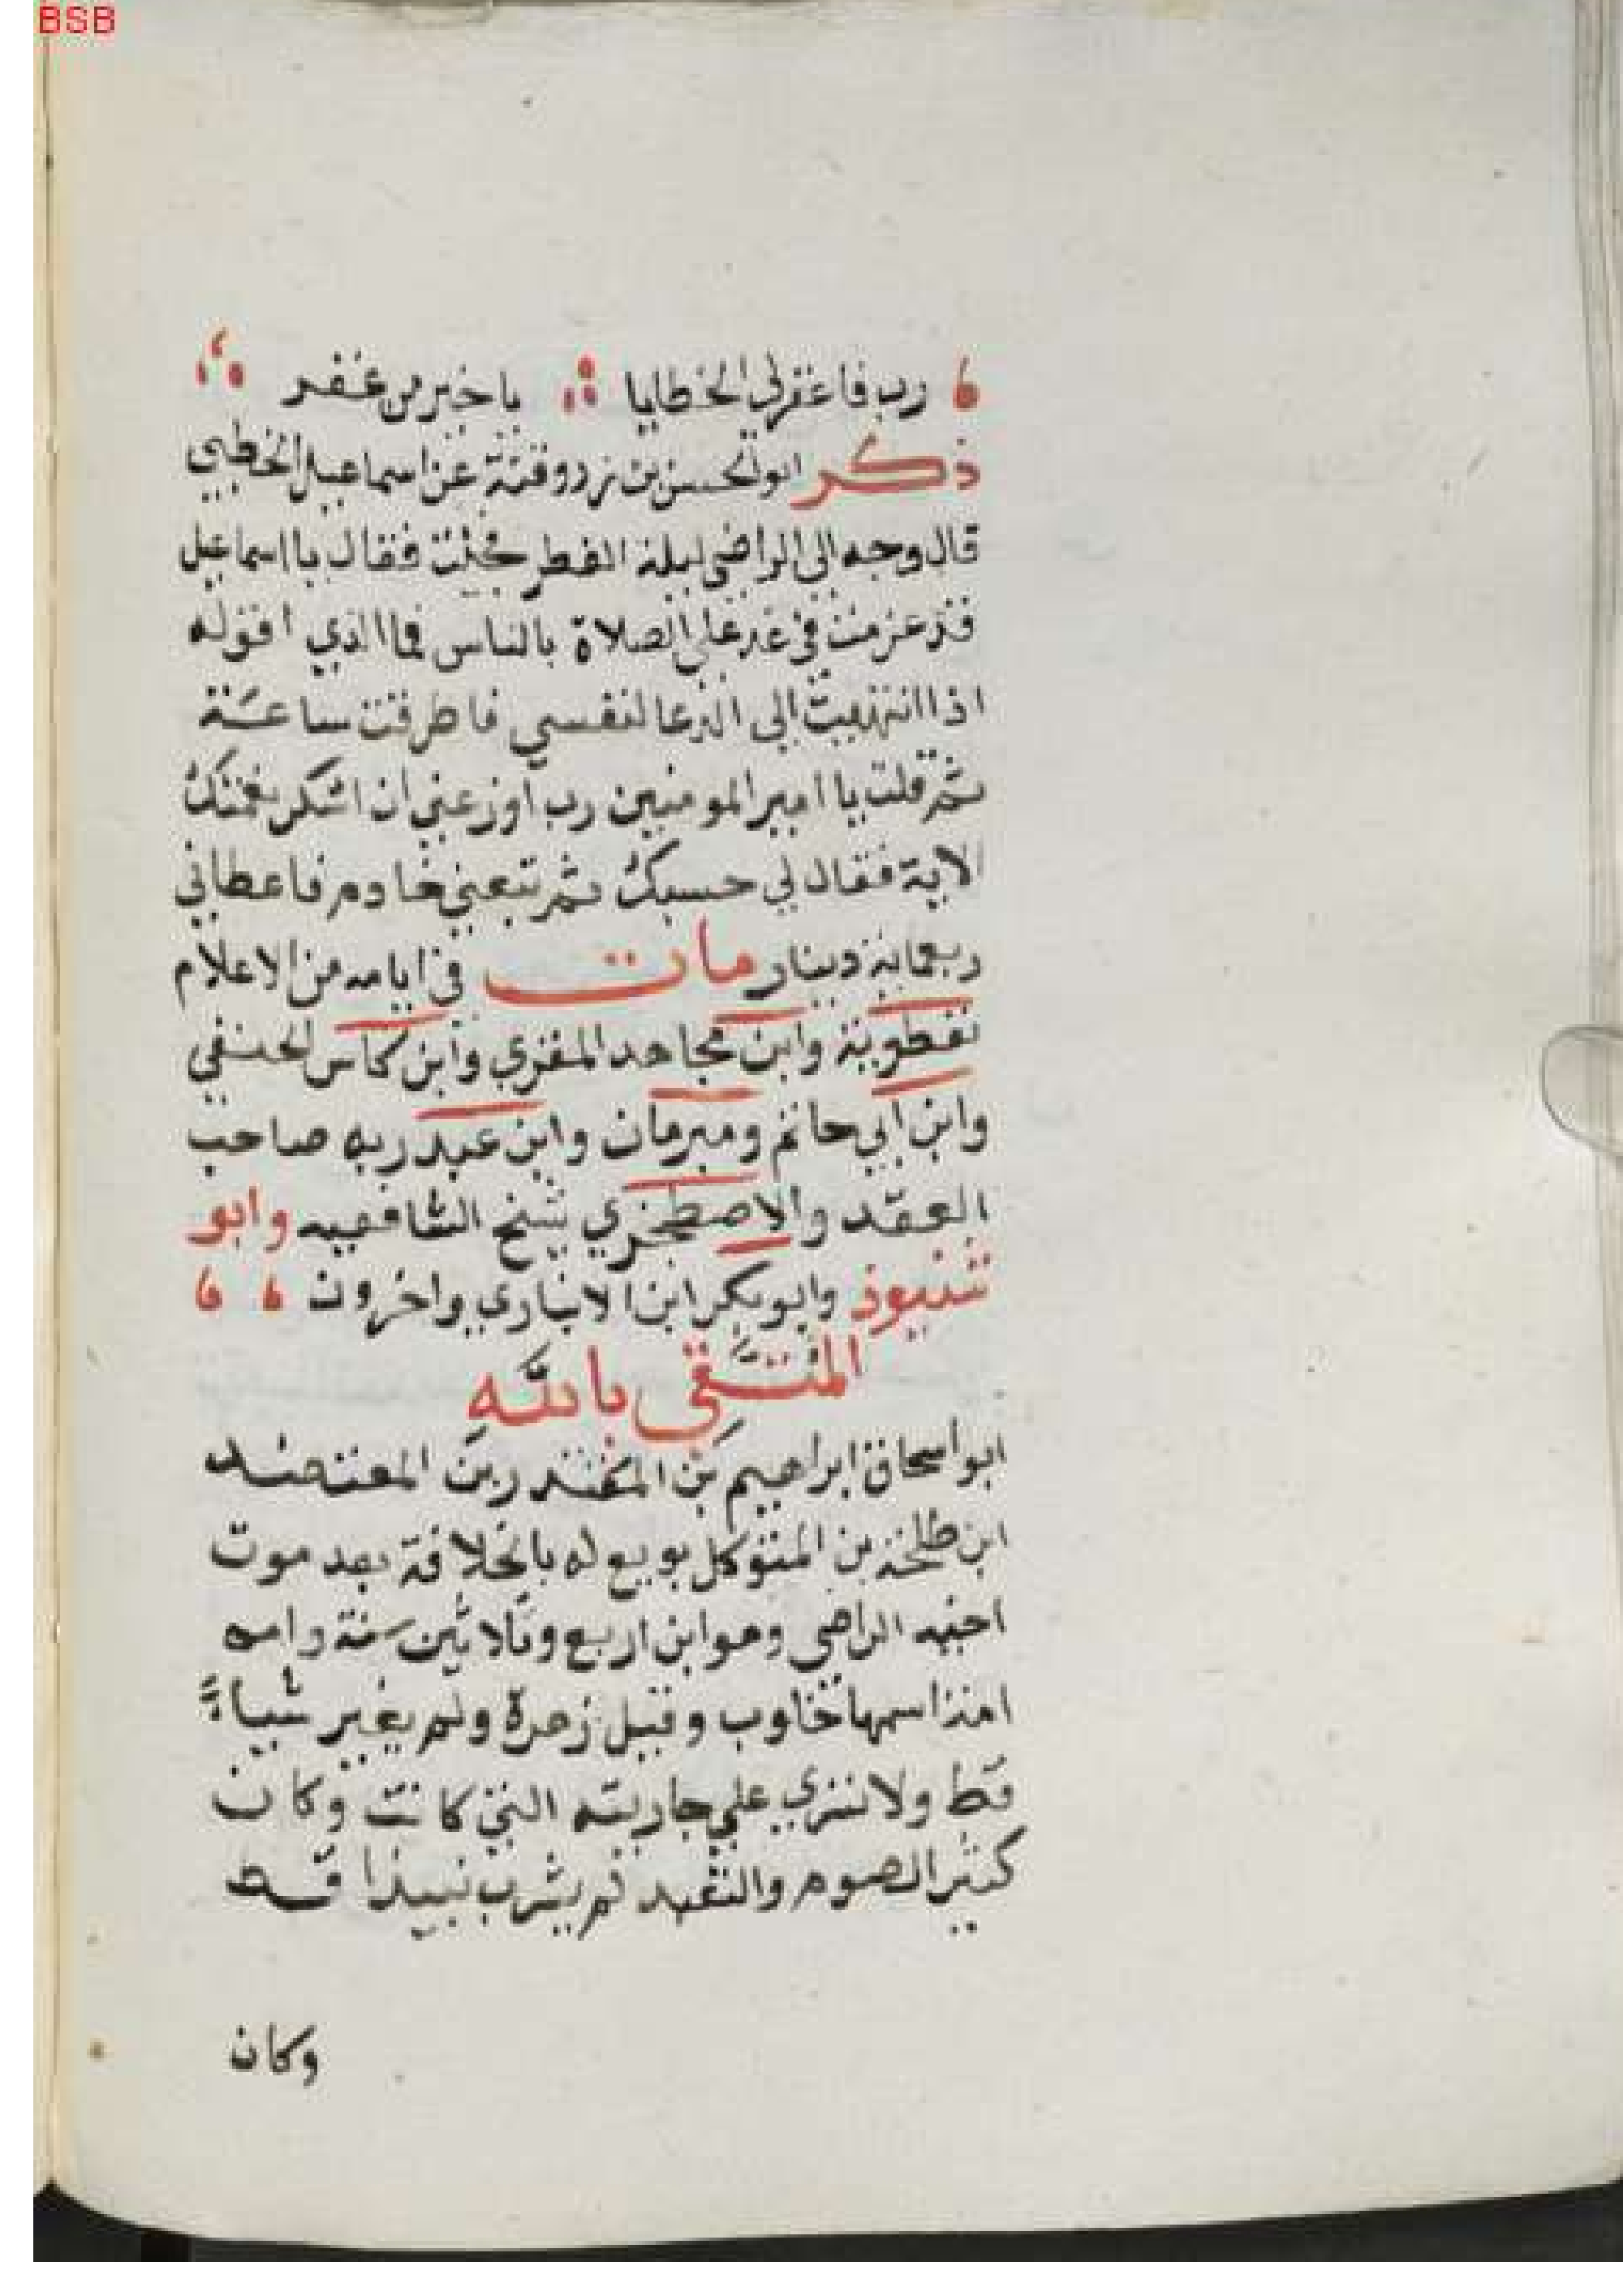 BSB
رب فاغفر لي الخطايا يا خير من غفر
ذكر ابو الحسن بن زردوقنة عن اسماعيل الخطبي
قال وجه الي الراضي ليلة الفطر فجئت فقال يا اسماعيل
قد عزمت في غد على الصلاة بالناس فما الذي اقوله
اذا انتهيت الى الدعا لنفسي فاطرقت ساعة
ثم قلت يا امير المومنين رب اوزعني ان اشكر نعمتك
الاية فقال لي حسبك ثم تبعني خادم فاعطاني
ربعماية دينار مات في ايامه من الاعلام
نفطوية وابن مجاهد المقري وابن كاس الحنفي
وابن ابي حاتم ومبرمان وابن عبد ربه صاحب
العقد والاصطخري شيخ الشافعيه وابو
شنبوذ وابو بكر ابن الانباري واخرون
المتقي بالله
ابو اسحاق ابراهيم بن المقتدر بن المعتضد
ابن طلحة بن المتوكل بويع له بالخلافة بعد موت
اخيه الراضي وهو ابن اربع وثلاثين سنة وامه
امة اسمها خلوب وقيل زهرة ولم يغير شياءً
قط ولا تسري علي جاريته التي كانت وكان
كثير الصوم والتعبد لم يشرب نبيذا قط
وكان